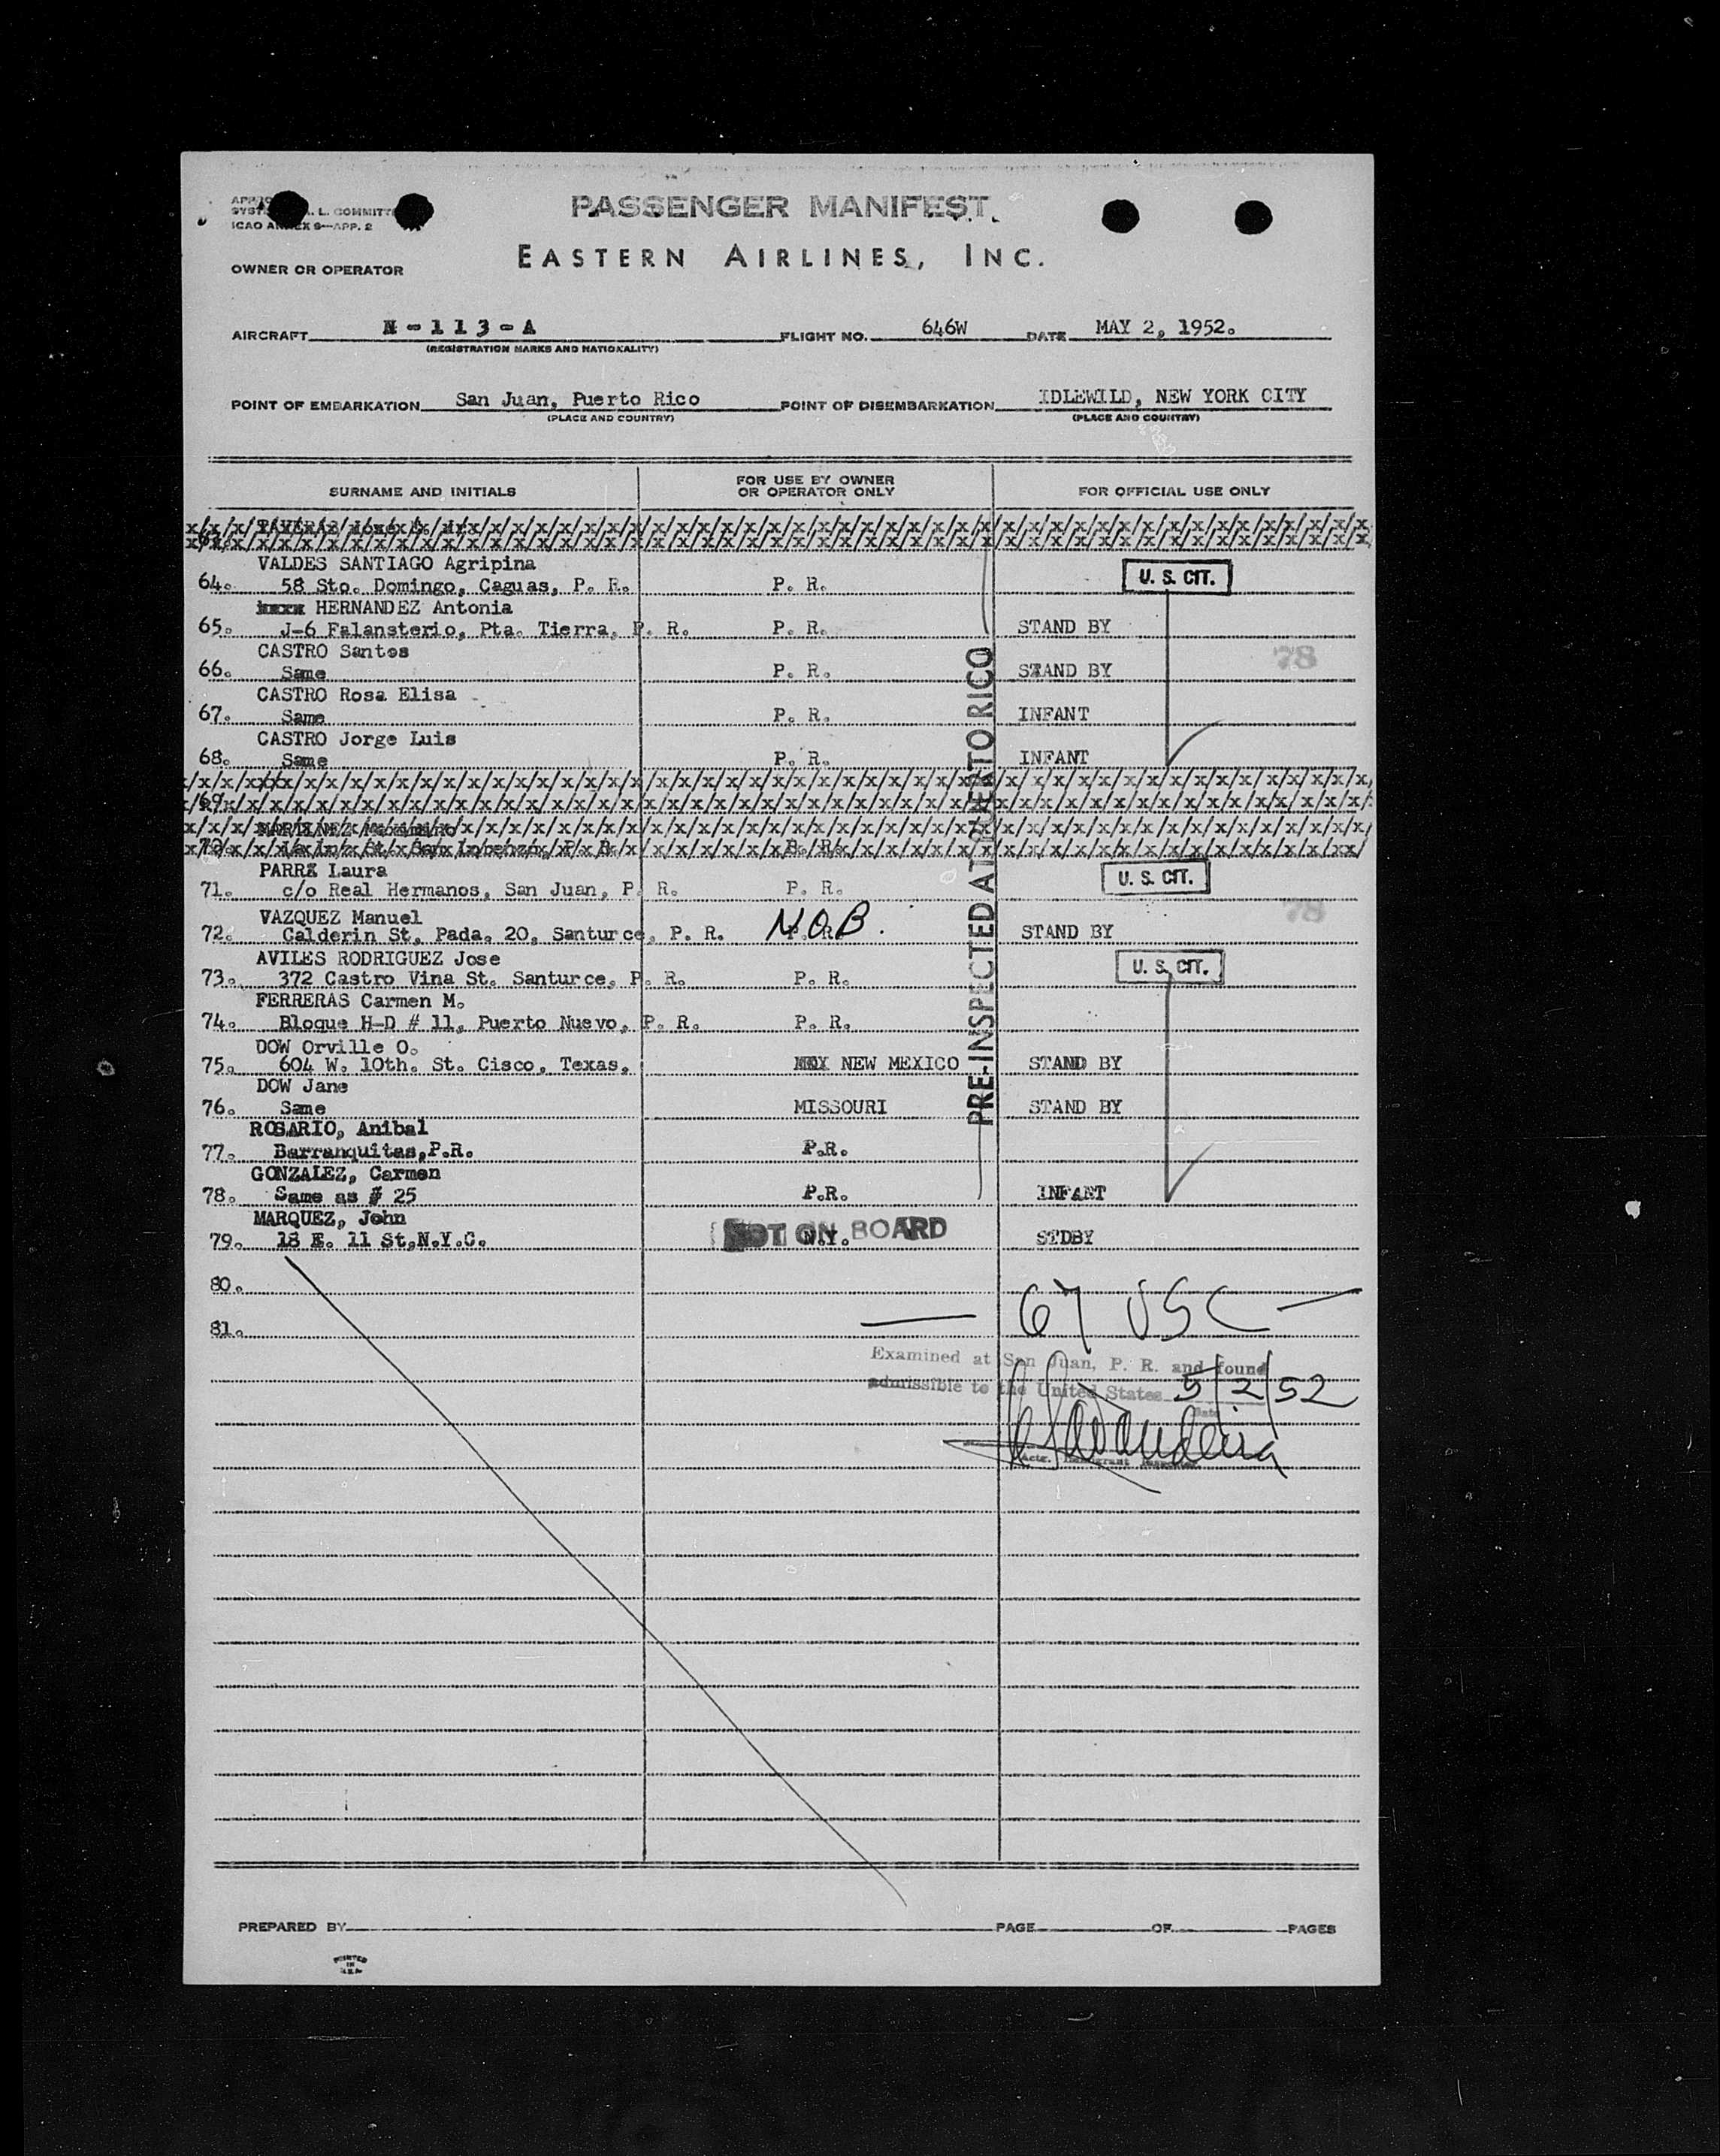 PASSENGER MANIFEST
ICAO ANNEX 9—APP. 2
EASTERN AIRLINES, INC.
OWNER OR OPERATOR
AIRCRAFT N-113-A FLIGHT NO. 646W DATE MAY 2, 1952.
(REGISTRATION MARKS AND NATIONALITY)
POINT OF EMBARKATION San Juan, Puerto Rico POINT OF DISEMBARKATION IDLEWILD, NEW YORK CITY
(PLACE AND COUNTRY) (PLACE AND COUNTRY)
SURNAME AND INITIALS FOR USE BY OWNER OR OPERATOR ONLY FOR OFFICIAL USE ONLY
VALDES SANTIAGO Agripina
64. 58 Sto. Domingo, Caguas, P. R. P. R. U. S. CIT.
HERNANDEZ Antonia
65. J-6 Falansterio, Pta. Tierra, P. R. P. R. STAND BY
CASTRO Santos
66. Same P. R. STAND BY 78
CASTRO Rosa Elisa
67. Same P. R. INFANT
CASTRO Jorge Luis
68. Same P. R. INFANT
69.
MARTINEZ Maximino
PARRA Laura
71. c/o Real Hermanos, San Juan, P. R. P. R. U. S. CIT.
VAZQUEZ Manuel
72. Calderin St. Pada. 20, Santurce, P. R. P. R. N.O.B. STAND BY 78
AVILES RODRIGUEZ Jose
73. 372 Castro Vina St. Santurce, P. R. P. R. U. S. CIT.
FERRERAS Carmen M.
74. Bloque H-D # 11, Puerto Nuevo, P. R. P. R.
DOW Orville O.
75. 604 W. 10th. St. Cisco, Texas. NEW MEXICO STAND BY
DOW Jane
76. Same MISSOURI STAND BY
PRE-INSPECTED AT PUERTO RICO
ROSARIO, Anibal
77. Barranquitas,P.R. P.R.
GONZALEZ, Carmen
78. Same as # 25 P.R. INFANT
MARQUEZ, John
79. 18 E. 11 St,N.Y.C. N.Y. NOT ON BOARD STDBY
80.
81.
— 67 USC —
Examined at San Juan, P. R. and found
admissible to the United States 5/2/52
Date
PREPARED BY PAGE OF PAGES
PRINTED
IN
U.S.A.